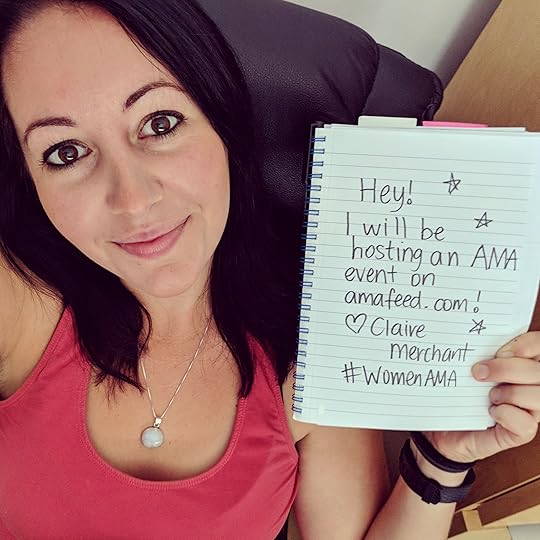 Hey!
I will be
hosting an AMA
event on
amafeed.com!
♡ Claire
Merchant
#WomenAMA